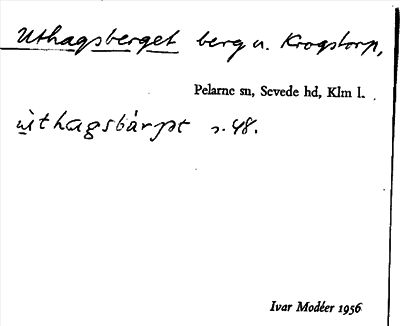 Uthagsberget berg u. Krogstorp,
Pelarne sn, Sevede hd, Klm l.
ùthagsbárjət s. 48.
Ivar Modéer 1956